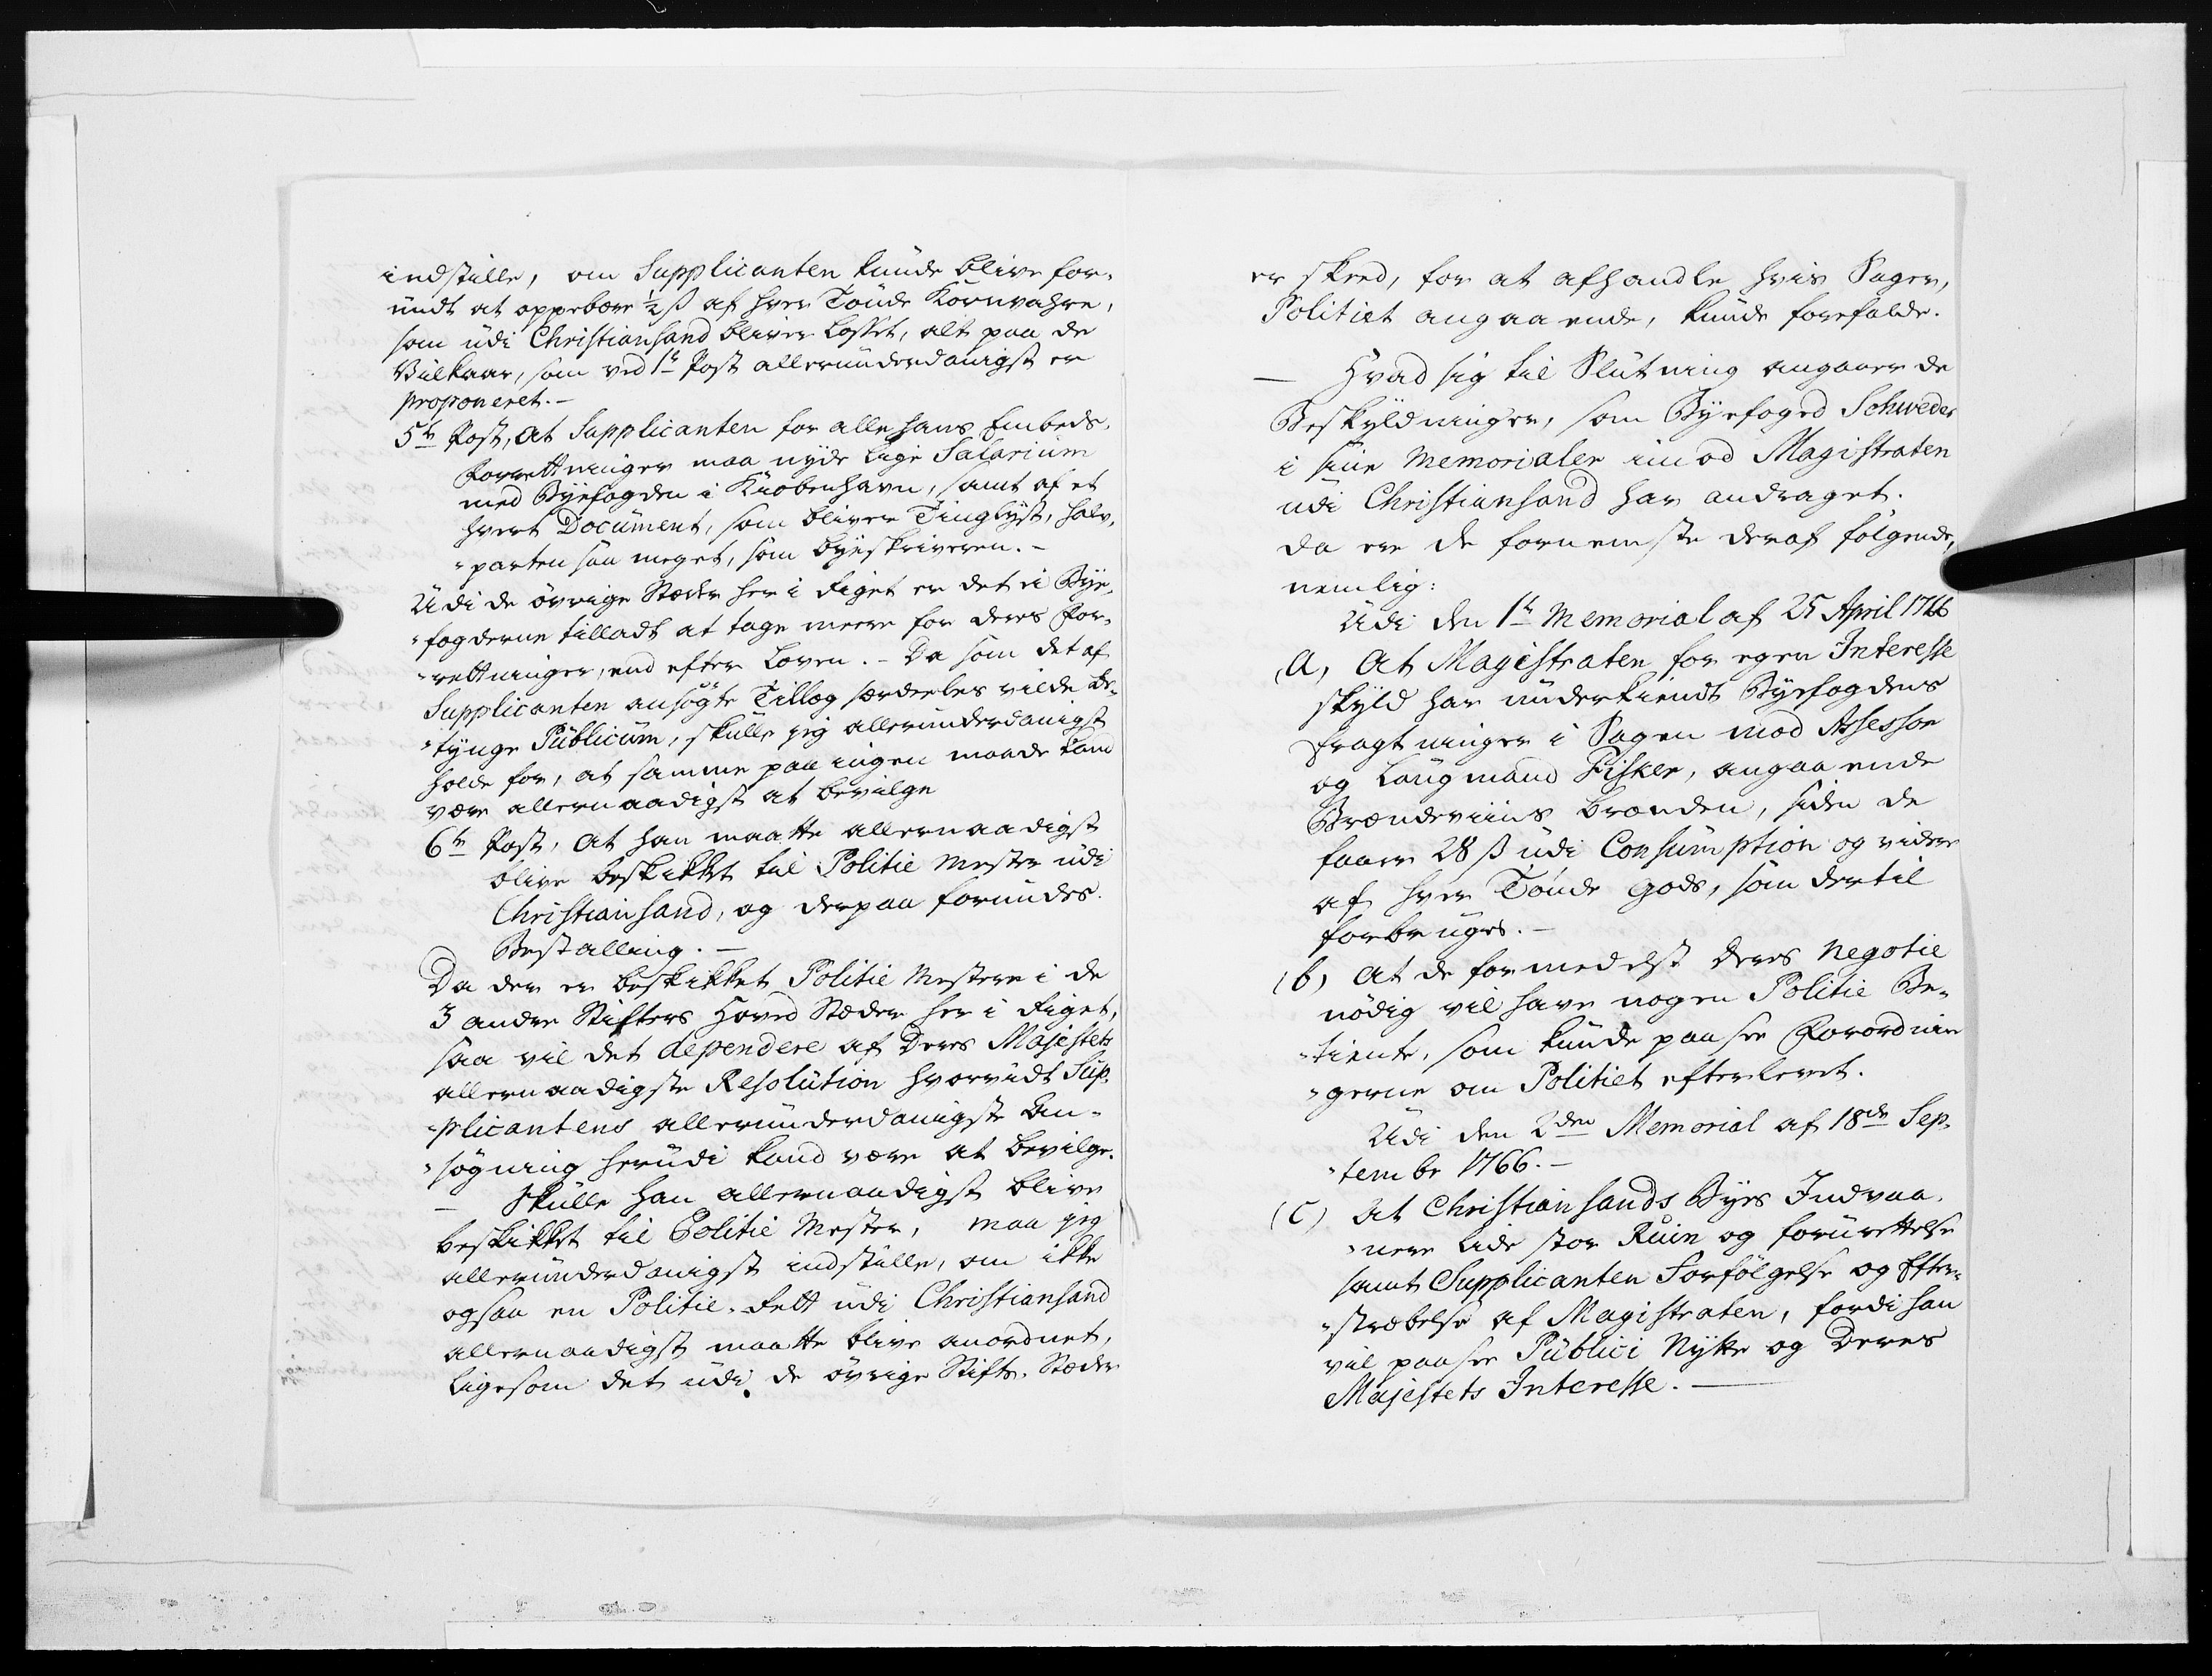 indstille, om Supplicanten kunde blive for-
undt at oppebære ½ ß af hver Tönde Kornvahre,
som udi Christiansand bliver Losset, alt paa de
Vilkaar, som ved 1te Post allerunderdanigst er
proponeret.-
5te Post, At Supplicanten for alle hans Embeds-
Forrettninger maa nyde lige Salarium
med Byefogden i Kiöbenhavn, samt af et
hvert Document, som bliver Tinglyst, halv-
"parten saa meget, som byeskriveren. -
Udi de övrige Stæder her i Riget er det ei Bye-
"fogderne tilladt at tage meere for deres For-
"rettninger, end efter Loven. - Da som det af
Supplicanten ansögte Tillæg særdeeles vilde be-
"tynge Publicum, skulle jeg allerunderdanigst
holde for, at samme paa ingen maade kand
være allernaadigst at bevilge
6te Post, At han maatte allernaadigst
blive beskikket til Politie Mester udi
Christiansand, og derpaa forundes
Bestalling. -
Da der er beskikket Politie Mestere i de
3 andre Stifters Hoved Stæder her i Riget,
saa vil det dependere af Deres Majestets
allernaadigste Resolution hvorvidt Sup-
"plicantens allerunderdanigste An-
"sögning herudi kand være at bevilge.
- Skulle han allernaadigst blive
beskikket til Politie Mester, maa jeg
allerunderdanigst indstille, om ikke
ogsaa en Politie-Rett udi Christiansand
allernaadigst maatte blive anordnet,
ligesom det udi de övrige Stifts-Stæder
er skeed, for at afhandle hvis Sager,
Politiet angaaende, kunde forefalde.
- Hvad sig til Slutning angaaer de
Beskyldninger, som Byefoged Schweder
i sine Memorialer imod Magistraten
udi Christiansand har andraget.
da ere de fornemste deraf fölgende,
nemlig:
Udi den 1te Memorial af 25 April 1766
(a) At Magistraten for egen Interesse
skyld har underkiendt Byefogdens
fragtninger i Sagen mod Assessor
og Laugmand Fisker, angaaende
Brændeviins brænden, siden de
faaer 28 ß udi Consumption og videre
af hver Tönde Gods, som dertil
forbruges. -
(b) At de formedelst deres Negotie
nödig vil have nogen Politie Be-
"tiente, som kunde paasee Forordnin
"gerne om Politiet efterlevet.
Udi den 2den Memorial af 18de Sep-
"tembr 1766. -
(c) At Christiansands Byes Indvaa-
"nere lide stor Ruin og forurettelse
samt Supplicanten Forfölgelse og Efter-
"stræbelse af Magistraten, fordi han
vil paasee Publici Nytte og Deres
Majestets Interesse. -